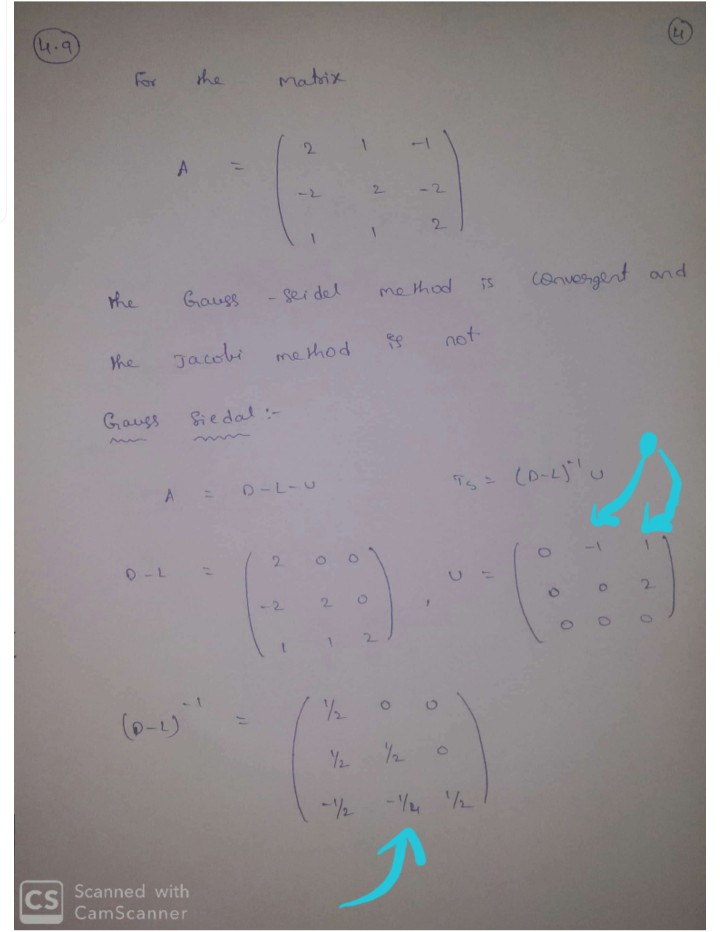 4.9
4
For the matrix
A = ( 2 1 -1
-2 2 -2
1 1 2 )
the Gauss - Seidel method is convergent and
the Jacobi method is not
Gauss Siedal :-
A = D-L-U T_S = (D-L)^-1 U
D-L = ( 2 0 0
-2 2 0
1 1 2 ) , U = ( 0 -1 1
0 0 2
0 0 0 )
(D-L)^-1 = ( 1/2 0 0
1/2 1/2 0
-1/2 -1/4 1/2 )
CS Scanned with
CamScanner